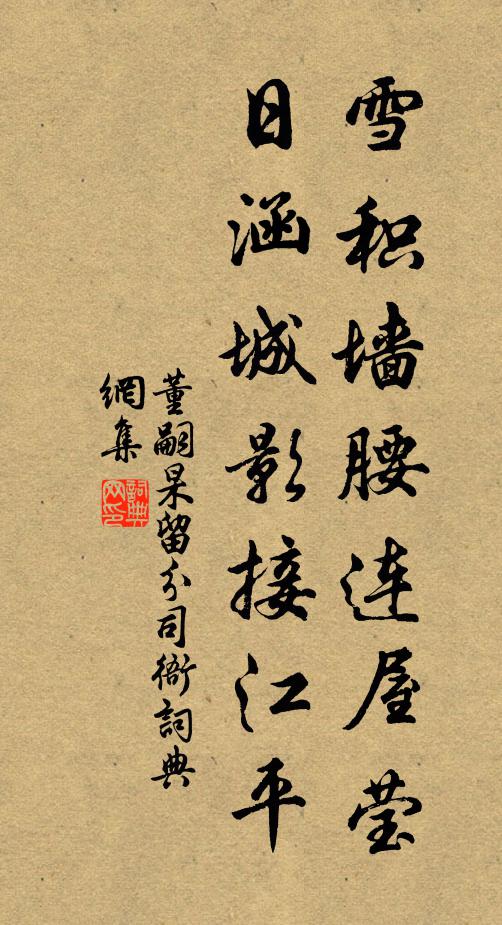 雪积墙腰连屋莹
日涵城影接江平
董嗣杲留分司衙詞典
網集
詞典網印